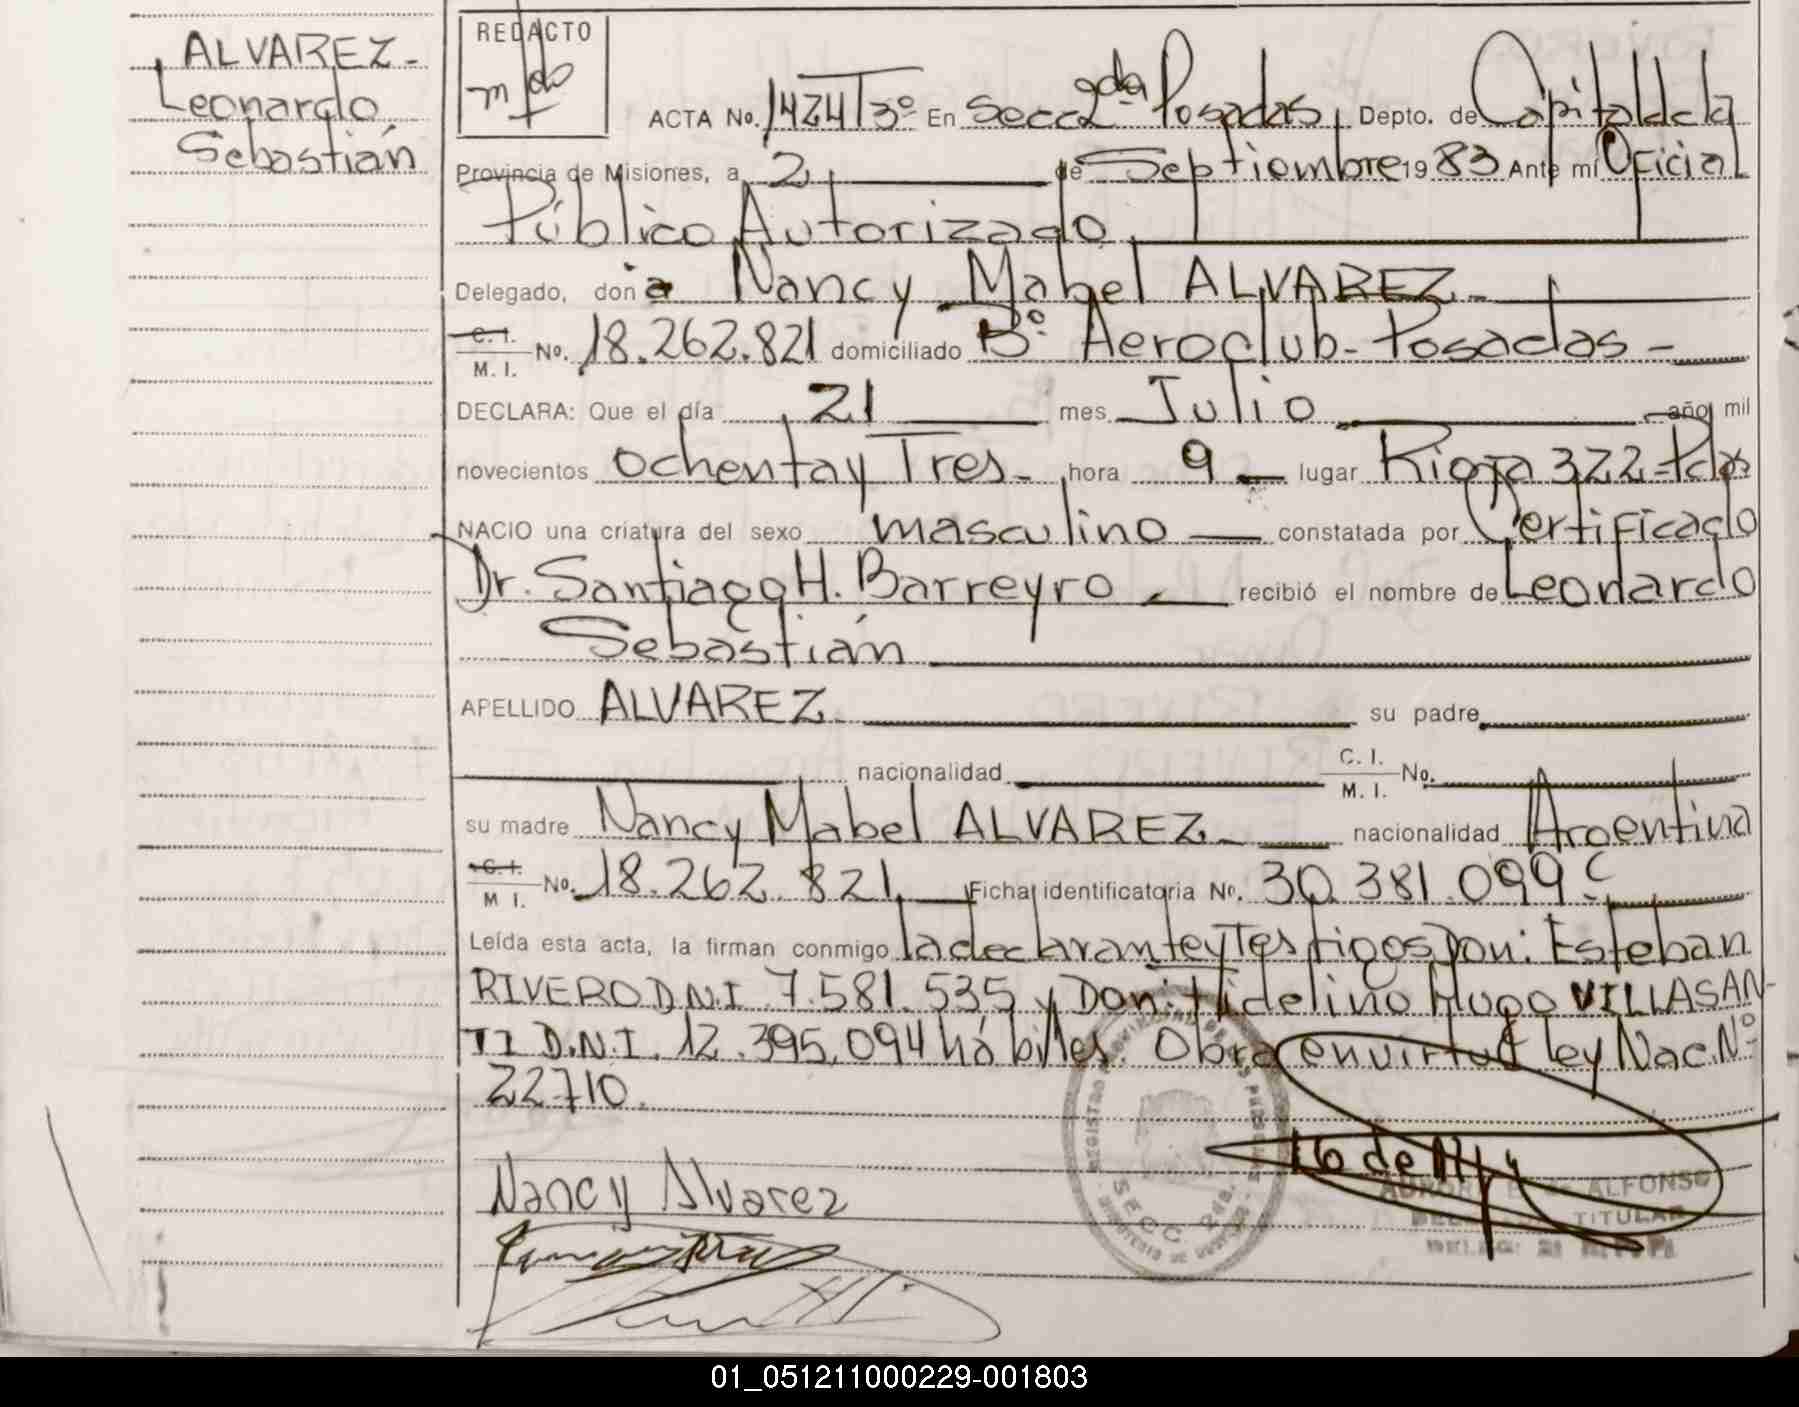 ALVAREZ-
Leonardo
Sebastián
REDACTO
ACTA No. 1424 Tº 3º En Secc 2da Posadas, Depto. de Capital de la
Provincia de Misiones, a 2 de Septiembre 1983 Ante mí Oficial
Público Autorizado
Delegado, doña Nancy Mabel ALVAREZ-
C. I.
M. I. No. 18.262.821 domiciliado Bº Aeroclub-Posadas-
DECLARA: Que el día 21 mes Julio año mil
novecientos ochenta y Tres- hora 9 lugar Rioja 322-Pdas
NACIO una criatura del sexo masculino constatada por Certificado
Dr. Santiago H. Barreyro recibió el nombre de Leonardo
Sebastián
APELLIDO ALVAREZ su padre
nacionalidad C. I.
M. I. No.
su madre Nancy Mabel ALVAREZ- nacionalidad Argentina
C. I.
M. I. No. 18.262.821 Ficha identificatoria No. 30.381.099 C
Leída esta acta, la firman conmigo la declarante y Testigos Don: Esteban
RIVERO D.N.I 7.581.535 y Don: Fidelino Hugo VILLASAN-
TI D.N.I. 12.395.094 hábiles. Obra en virtud ley Nac. Nº
22710.
Nancy Alvarez
REGISTRO PROVINCIAL DE LAS PERSONAS
SECC. 2da.
ALFONSO
TITULAR
01_051211000229-001803